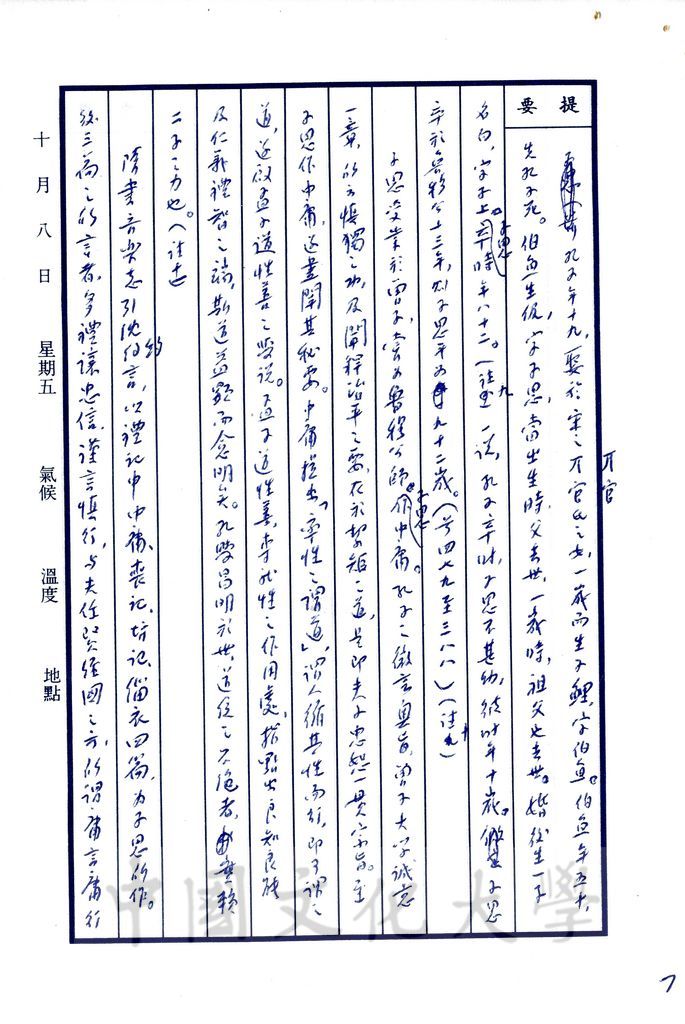 提要
孔子年十九,娶於宋之亓官氏之女,一歲而生子鯉,字伯魚。伯魚年五十,
亓官
先孔子死。伯魚生伋,字子思,當出生時,父去世,一歲時,祖父也去世。婚後生一子
名白,字子上。子思卒時年八十二。(註九)一說,孔子卒時,子思不甚幼,彼時年十歲。子思
卒於魯穆公上三年,則子思卒為九十二歲。(前四七九至三八八)(註十)
子思受業於曾子,嘗為魯穆公師。子思作中庸。孔子之微言奧旨,曾子大學誠意
一章,所云慎獨之功,及開釋治平之要,在於挈矩之道,是即夫子忠恕一貫宗旨。至
子思作中庸,遂盡闡其秘要。中庸提出「率性之謂道」,謂人循其性而行,即可謂之
道,遂啟孟子道性善之學說。孟子道性善,率此性之作用處,指點出良知良能
及仁義禮智之端,斯道益顯而愈明矣。孔學昌明於世,道統之不絕者,實賴
二子之力也。(註十一)
隋書音樂志引沈約言,以禮記中中庸、表記、坊記、緇衣四篇,為子思所作。
後三篇之所言者,多禮讓忠信,謹言慎行,與夫任賢經國之方,所謂庸言庸行
十月八日 星期五 氣候 溫度 地點
中國文化大學
7